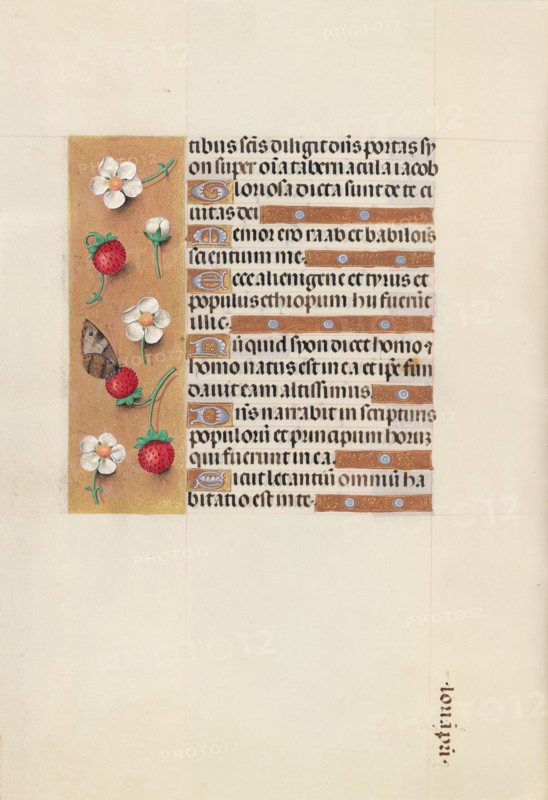 tibus scis diligit dns portas sy
on super oia tabernacula iacob
Gloriosa dicta sunt de te ci
uitas dei
Memor ero raab et babilois
scientium me.
Ecce alienigene et tyrus et
populus ethiopum hii fuerut
illic.
Nuquid syon dicet homo &
homo natus est in ea et ipe fun
dauit eam altissimus
Dns narrabit in scripturis
populoru et principum horum
qui fuerunt in ea.
Sicut letantiu omniu ha
bitatio est in te.
PHOTO12